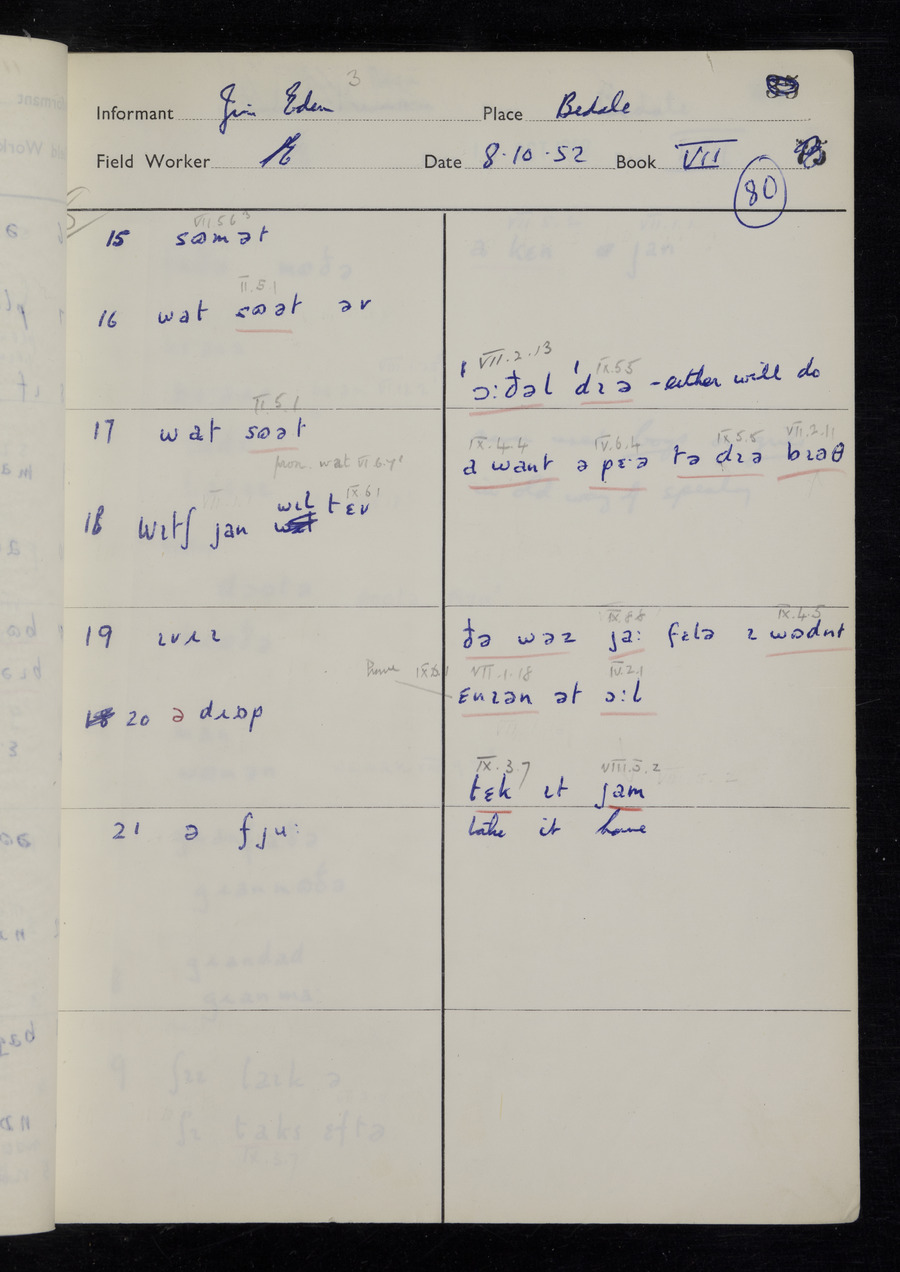 3
Informant Jim Eden Place Bedale
Field Worker Date 8.10.52 Book VII
80
VII.5.6
15 sɷmət
II.5.1
16 wat sɷət əv
VII.2.13 IX.5.5
ˈɔ:ðəl ˈdɪə - either will do
II.5.1
17 wat sɷət
pron. wat
IX.4.4 IV.6.4 IX.5.5 VII.2.11
a want ə pɛ·ə tə dɪə bɪəθ
IX.6.1
18 wɪtʃ jan wɪl tɛv
19 ɪvɹɪ
IX.8.8 IX.4.5
ðə wəz ja: fɛlə ɪ wədnt
VII.1.18 IV.2.1
ɛnɪən ət ɔ:l
20 ə dɹɒp
IX.3.7 VIII.5.2
tɛk ɪt jam
take it home
21 ə fju: